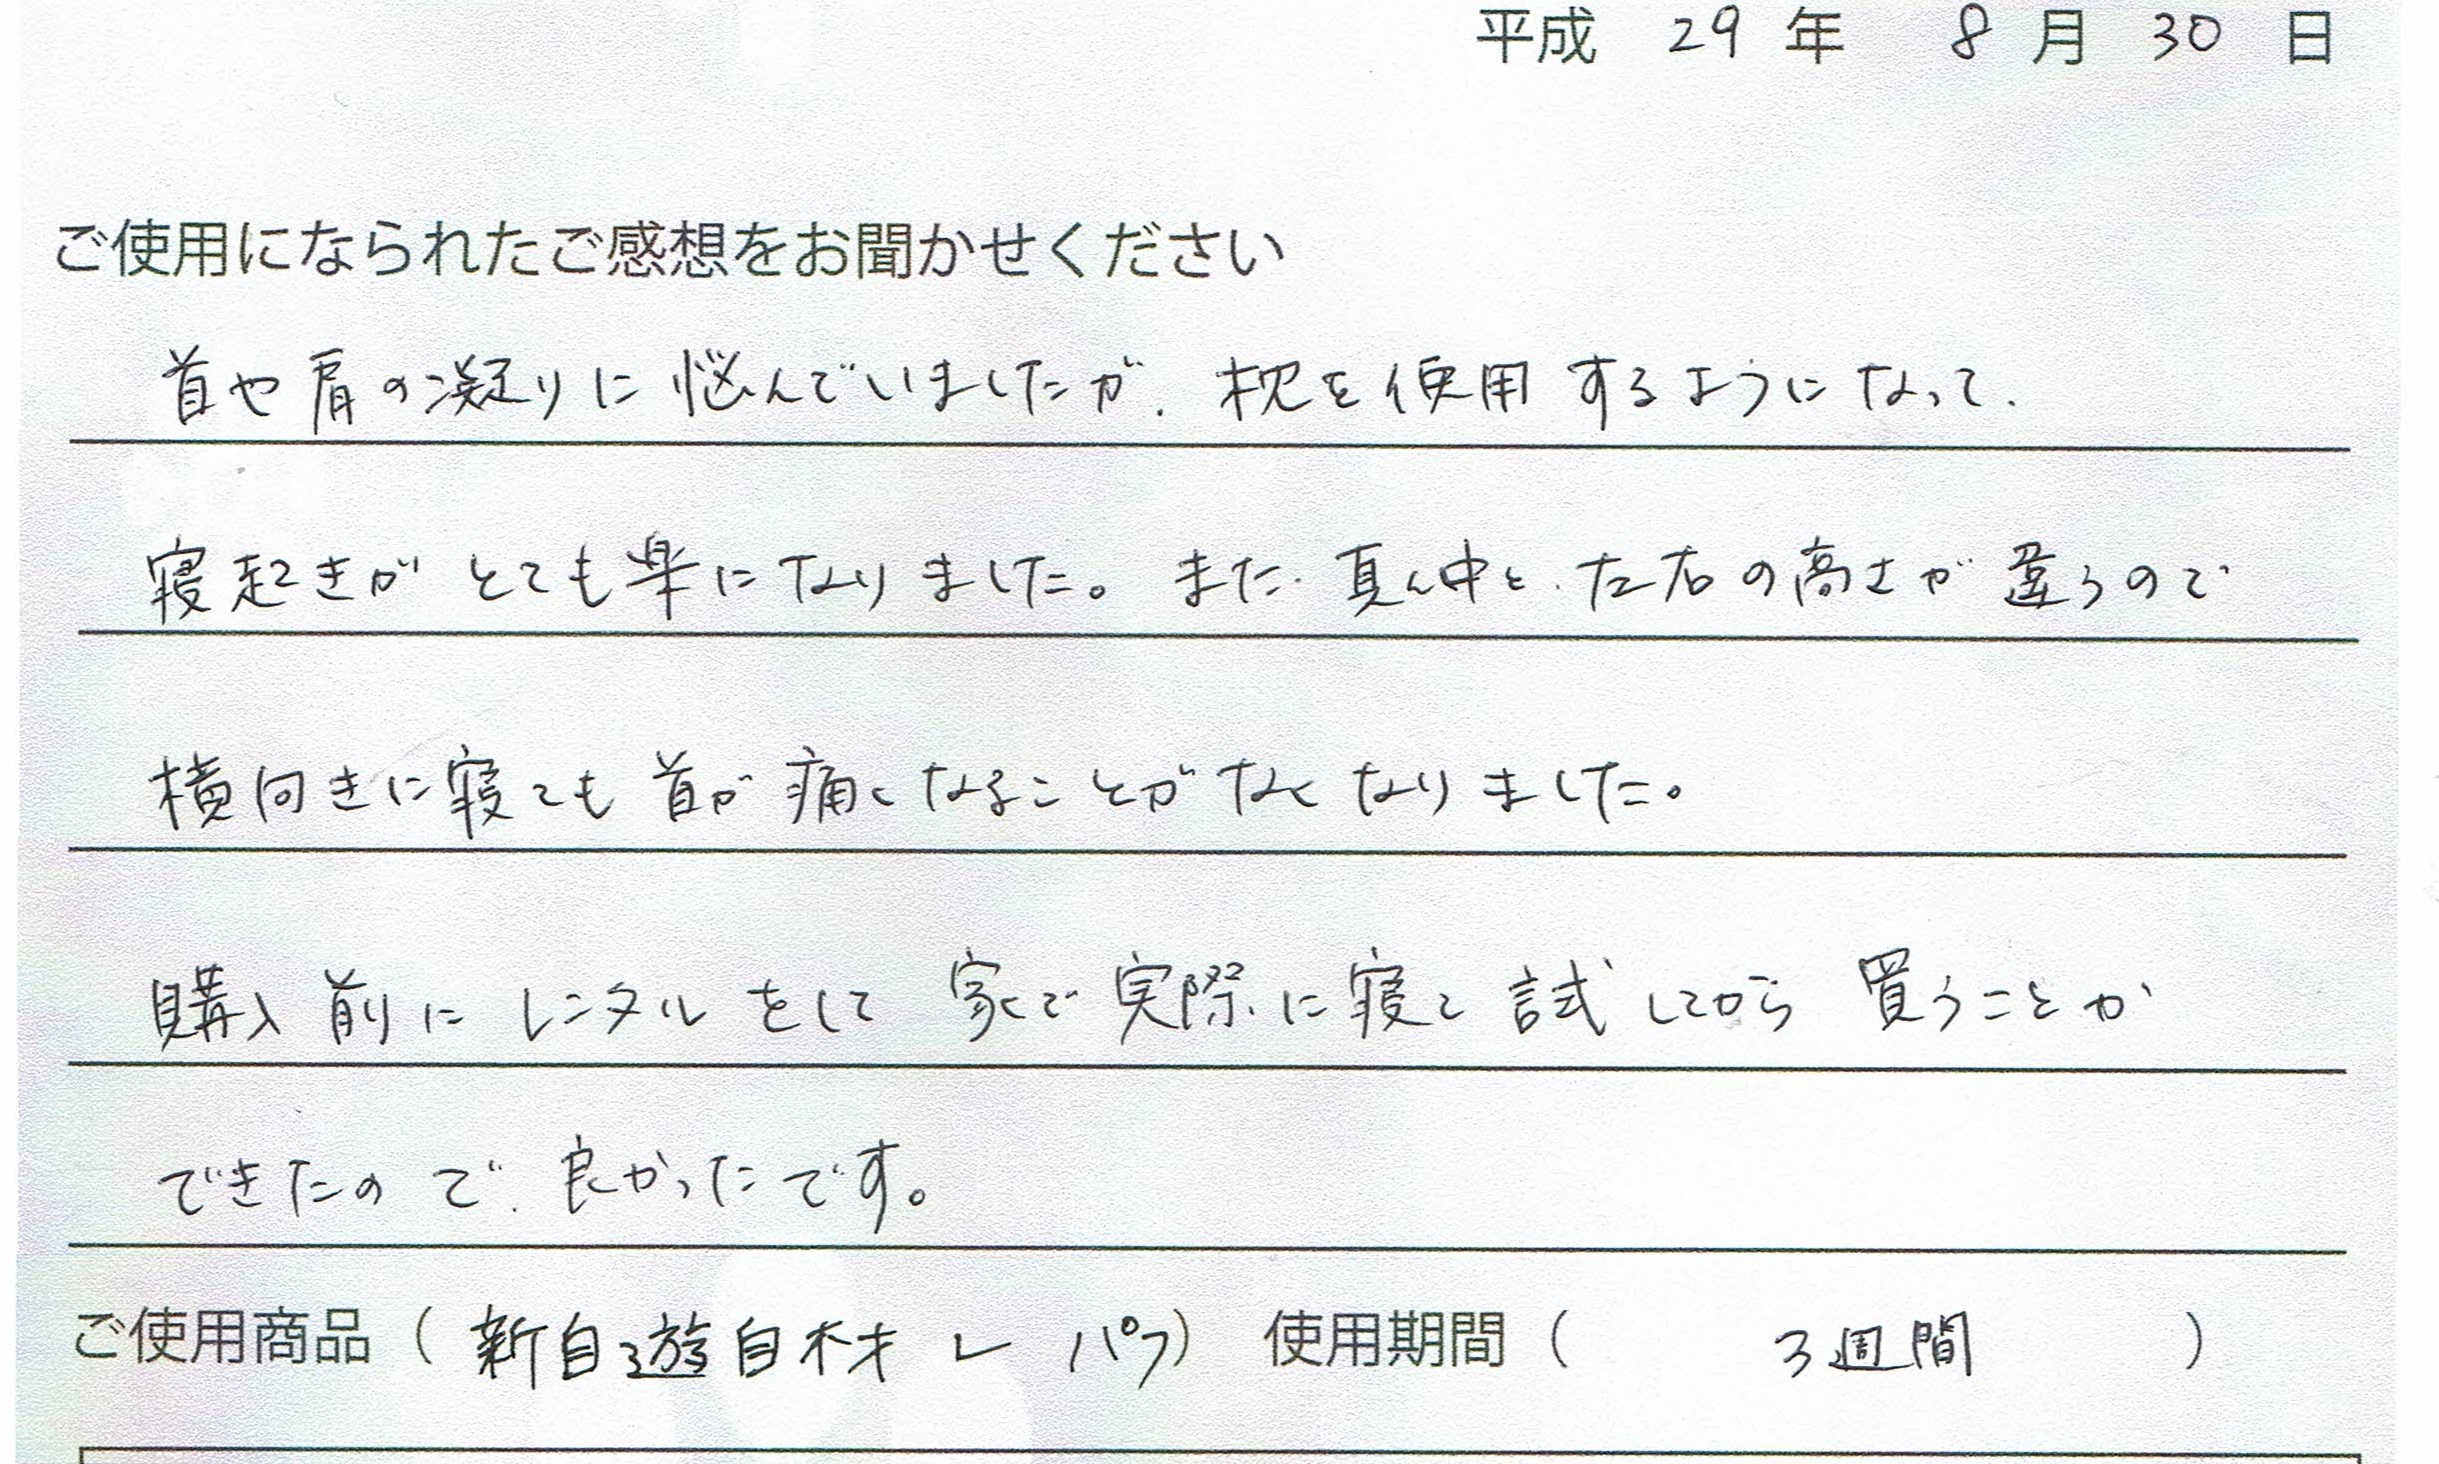 平成 29 年 8 月 30 日
ご使用になられたご感想をお聞かせください
首や肩の凝りに悩んでいましたが、枕を使用するようになって、
寝起きがとても楽になりました。また、真ん中と、左右の高さが違うので
横向きに寝ても首が痛くなることがなくなりました。
購入前にレンタルをして家で実際に寝て試してから買うことが
できたので、良かったです。
ご使用商品（新自遊自材 レ パフ） 使用期間（ 3週間 ）